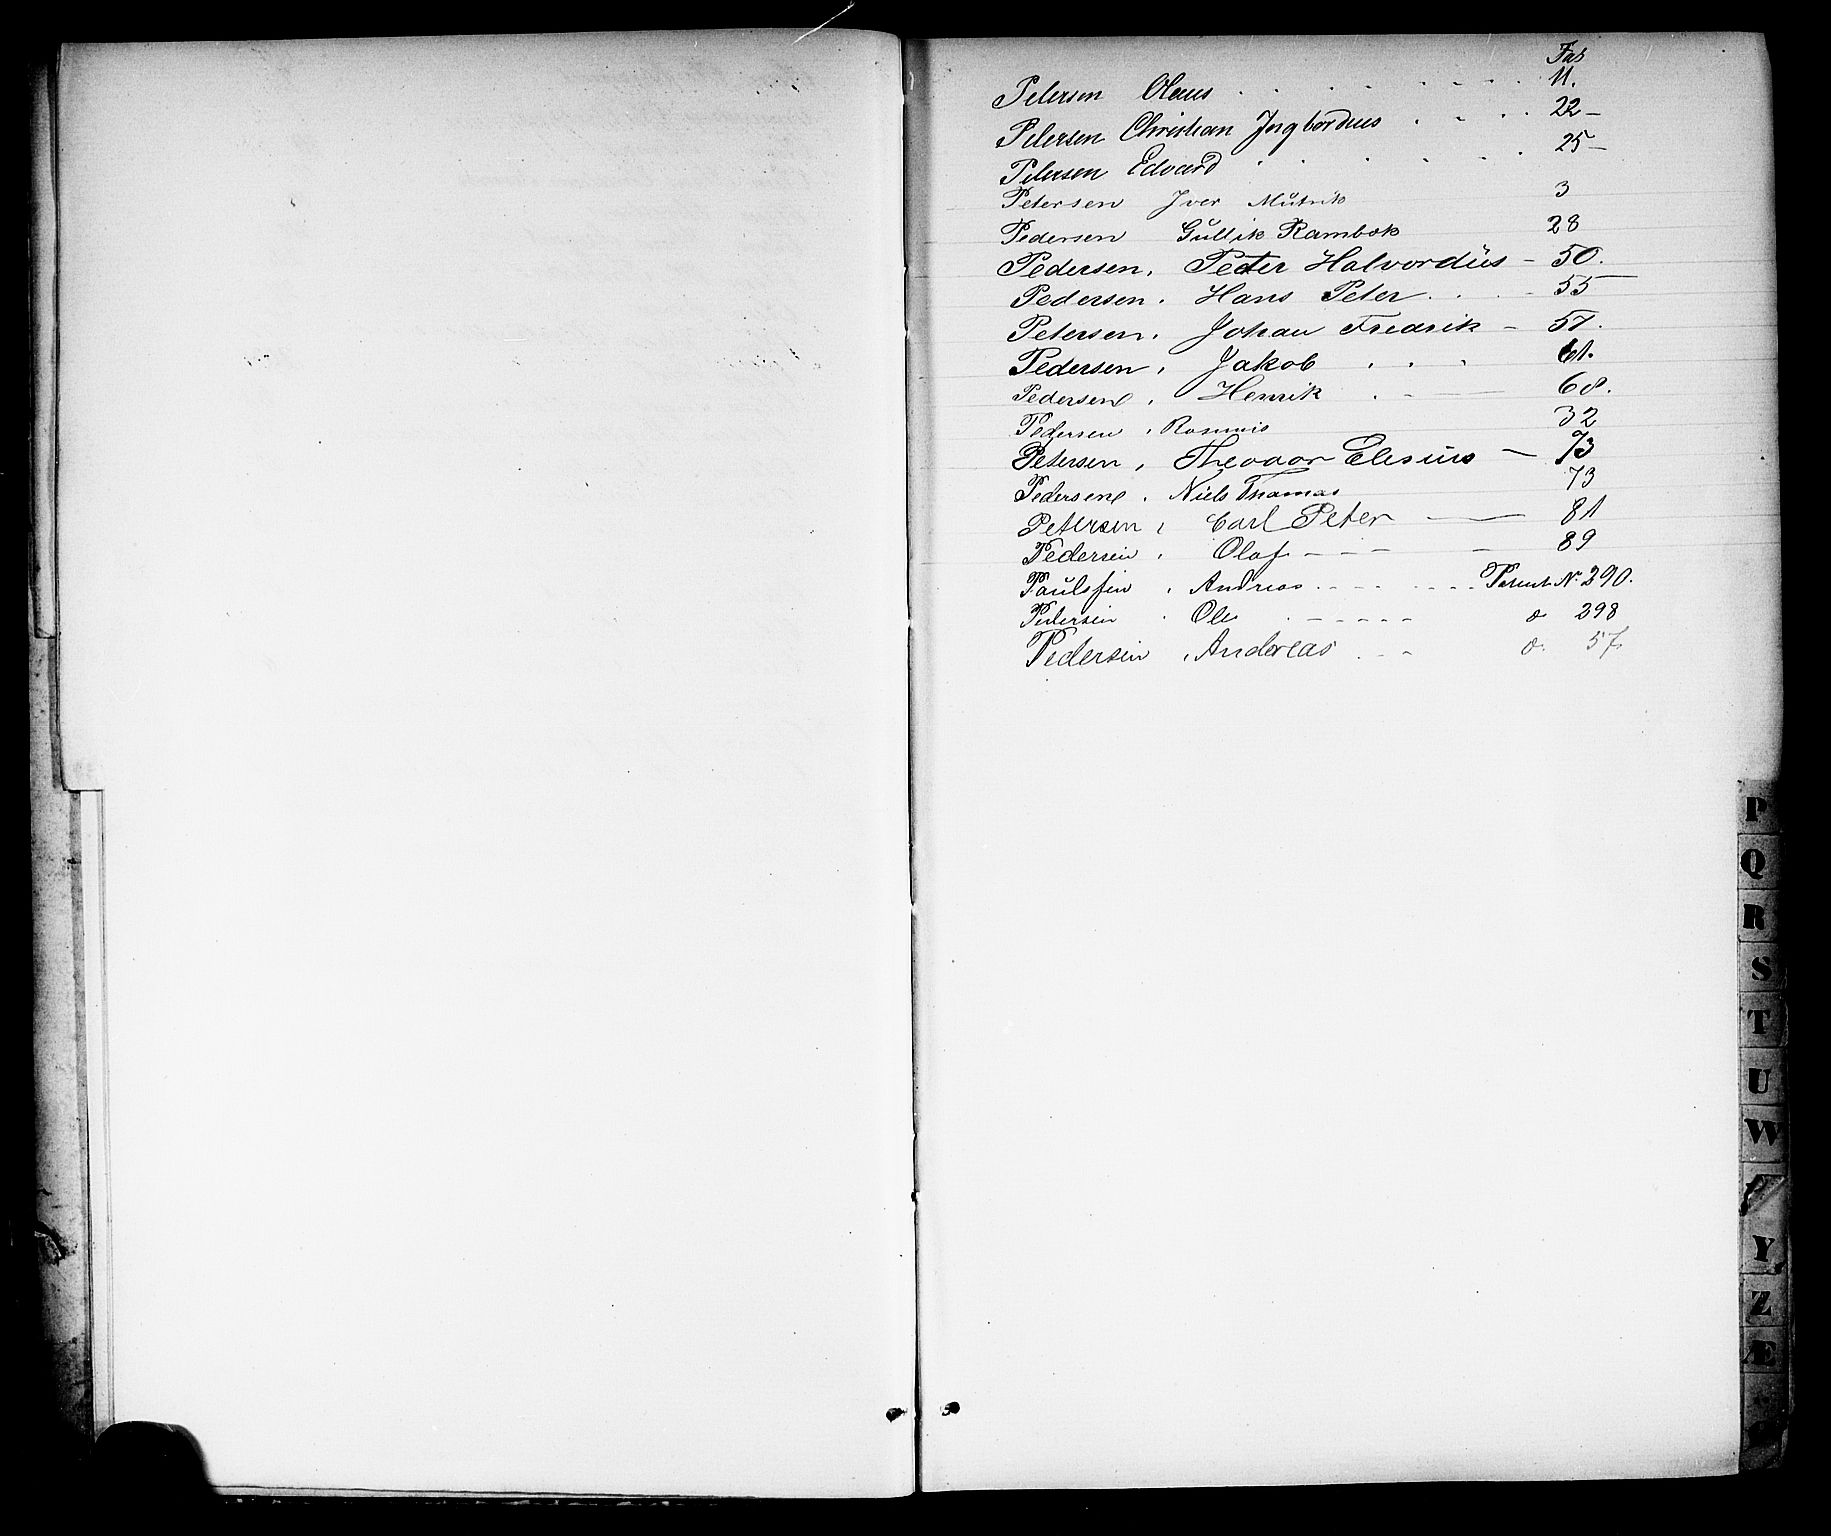 Fol
Petersen Olaus 11.
Petersen Christian Ingbordius 22 —
Petersen Edvard 25 —
Petersen Iver 3
Pedersen Gullik Rambæk 28
Pedersen, Peter Halvordüs — 50.
Pedersen, Hans Peter 55
Petersen, Johan Fredrik — 57.
Pedersen, Jakob 61.
Pedersen, Henrik 68.
Pedersen, Rasmus 32
Petersen, Theodor Elesius — 73
Pedersen, Niels Thomas 73
Petersen, Carl Peter — 81
Pedersen, Olaf — 89
Paulssen, Andreas Patent No. 290.
Pedersen Ole do 298
Pedersen, Andereas do. 57.
P
Q
R
S
T
U
W
Y
Z
Æ